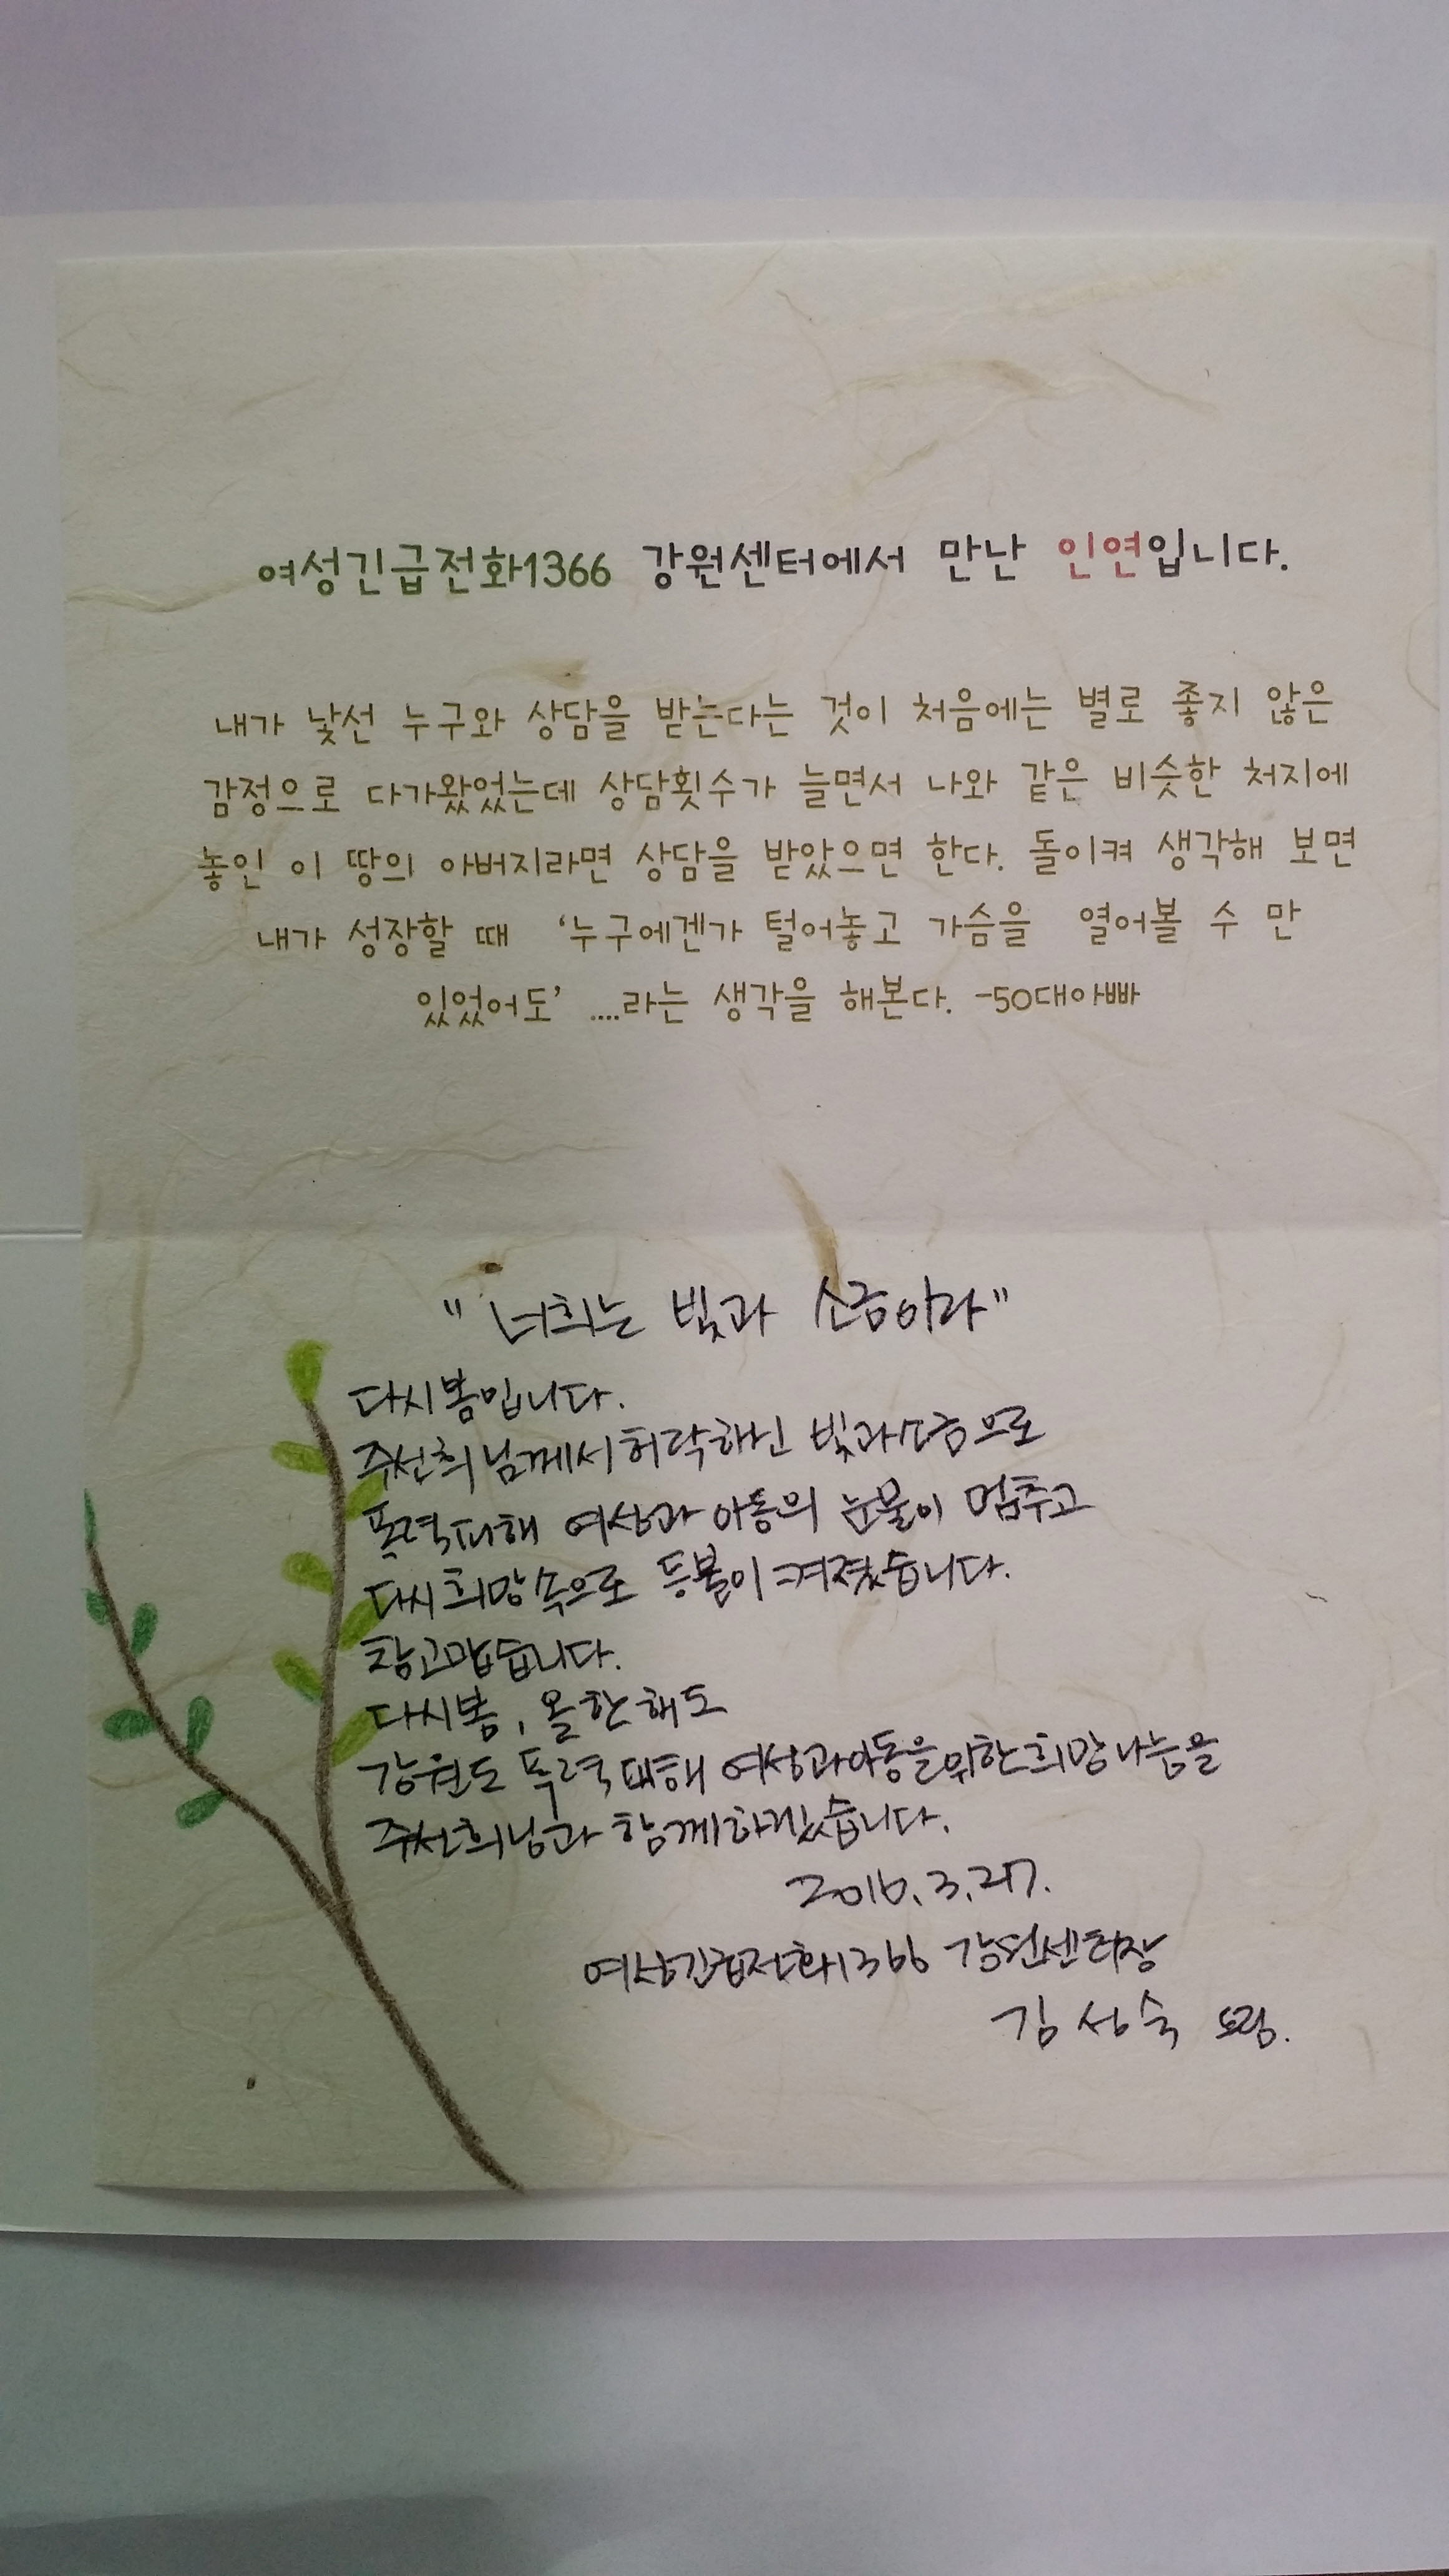 여성긴급전화1366 강원센터에서 만난 인연입니다.
내가 낯선 누구와 상담을 받는다는 것이 처음에는 별로 좋지 않은
감정으로 다가왔었는데 상담횟수가 늘면서 나와 같은 비슷한 처지에
놓인 이 땅의 아버지라면 상담을 받았으면 한다. 돌이켜 생각해 보면
내가 성장할 때 ‘누구에겐가 털어놓고 가슴을 열어볼 수 만
있었어도’ ....라는 생각을 해본다. -50대아빠
"너희는 빛과 소금이라"
다시봄입니다.
주선희님께서허락하신 빛과소금으로
폭력피해 여성과 아동의 눈물이 멈추고
다시희망속으로 등불이켜졌습니다.
참고맙습니다.
다시봄, 올한해도
강원도 폭력피해 여성과아동을위한희망나눔을
주선희님과 함께하겠습니다.
2016.3.27.
여성긴급전화1366 강원센터장
김성숙 드림.